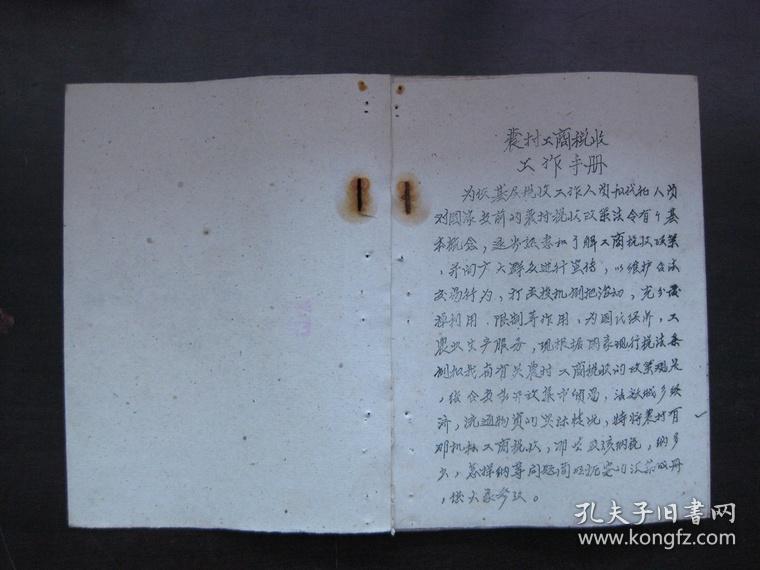 農村工商税收
工作手册
为使基层税收工作人员和代征人员
对国家当前的農村税收政策法令有个基
本概念，逐步認識和了解工商税收政策
，并向广大群众進行宣传，以維护合法
交易行为，打击投机倒把活动，充分發
揮利用、限制等作用，为国民经济，工
農业生产服务，現根据国家現行税法条
例和我省有关農村工商税收的政策规定
，结合当前开放集市貿易，活跃城乡经
济，流通物資的实际情况，特将農村有
那几种工商税收，那些应该纳税，纳多
少，怎样纳等问题简明扼要的汇編成册
，供大家参攷。
孔夫子旧书网
www.kongfz.com